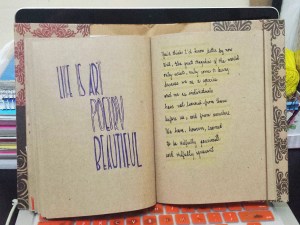 LIFE IS ART
POETRY
BEAUTIFUL
You'd think I'd know better by now
that the great tragedies of the world
only exist, only come to being
because we as a species
and we as individuals
have not learned from those
before us, and from ourselves.
We have, however, learned
to be willfully
and willfully ignorant.